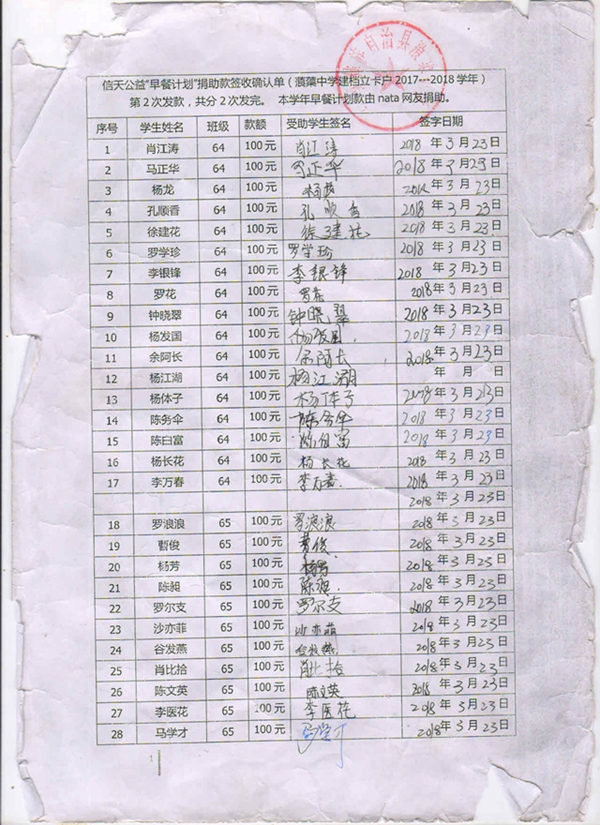 族自治县
信天公益“早餐计划”捐助款签收确认单（蒗蕖中学建档立卡户 2017---2018 学年）
第 2 次发款，共分 2 次发完。 本学年早餐计划款由 nata 网友捐助。
序号 学生姓名 班级 款额 受助学生签名 签字日期
1 肖江涛 64 100 元 肖江涛 2018 年 3 月 23 日
2 马正华 64 100 元 马正华 2018 年 3 月 23 日
3 杨龙 64 100 元 杨龙 2018 年 3 月 23 日
4 孔顺香 64 100 元 孔顺香 2018 年 3 月 23 日
5 徐建花 64 100 元 徐建花 2018 年 3 月 23 日
6 罗学珍 64 100 元 罗学珍 2018 年 3 月 23 日
7 李银锋 64 100 元 李银锋 2018 年 3 月 23 日
8 罗花 64 100 元 罗花 2018 年 3 月 23 日
9 钟晓翠 64 100 元 钟晓翠 2018 年 3 月 23 日
10 杨发国 64 100 元 杨发国 2018 年 3 月 23 日
11 余阿长 64 100 元 余阿长 2018 年 3 月 23 日
12 杨江湖 64 100 元 杨江湖 年 月 日
13 杨体子 64 100 元 杨体子 2018 年 3 月 23 日
14 陈务伞 64 100 元 陈务伞 2018 年 3 月 23 日
15 陈臼富 64 100 元 2018 年 3 月 23 日
16 杨长花 64 100 元 杨长花 2018 年 3 月 23 日
17 李万春 64 100 元 李万春 2018 年 3 月 23 日
2018 年 3 月 23 日
18 罗浪浪 65 100 元 罗浪浪 2018 年 3 月 23 日
19 俊 65 100 元 俊 2018 年 3 月 23 日
20 杨芳 65 100 元 杨芳 2018 年 3 月 23 日
21 陈昶 65 100 元 陈昶 2018 年 3 月 23 日
22 罗尔支 65 100 元 罗尔支 2018 年 3 月 23 日
23 沙亦菲 65 100 元 沙亦萌 2018 年 3 月 23 日
24 谷发燕 65 100 元 谷发燕 2018 年 3 月 23 日
25 肖比拾 65 100 元 肖比拾 2018 年 3 月 23 日
26 陈文英 65 100 元 陈文英 2018 年 3 月 23 日
27 李医花 65 100 元 李医花 2018 年 3 月 23 日
28 马学才 65 100 元 马学才 2018 年 3 月 23 日
1